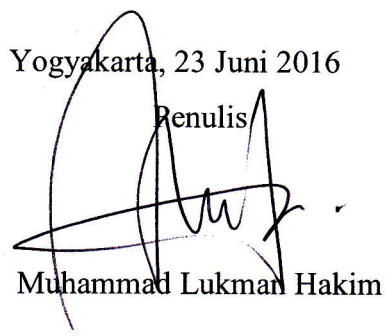 Yogyakarta, 23 Juni 2016
Penulis
Muhammad Lukman Hakim